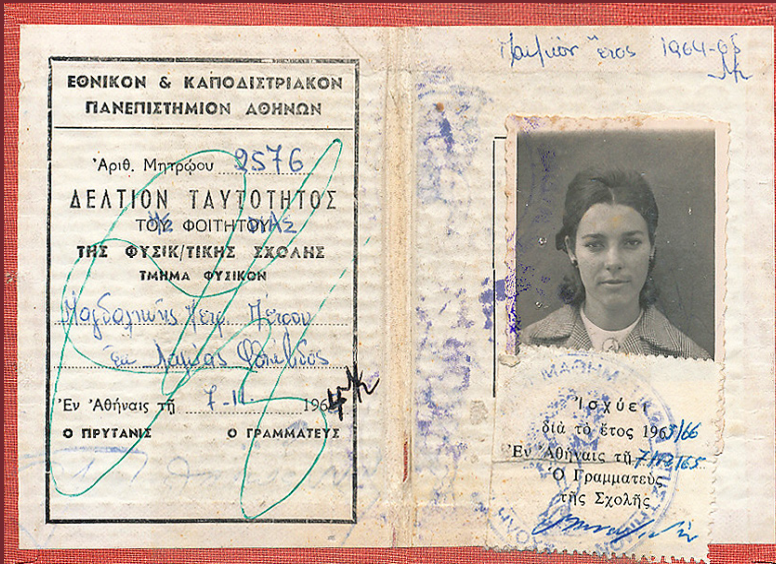 ΕΘΝΙΚΟΝ & ΚΑΠΟΔΙΣΤΡΙΑΚΟΝ
ΠΑΝΕΠΙΣΤΗΜΙΟΝ ΑΘΗΝΩΝ
Ἀριθ. Μητρώου 2576
ΔΕΛΤΙΟΝ ΤΑΥΤΟΤΗΤΟΣ
ΤΗΣ ΦΥΣΙΚ/ΤΙΚΗΣ ΣΧΟΛΗΣ
ΤΜΗΜΑ ΦΥΣΙΚΟΝ
Μαγδαληνῆς Πέτρου
ἐκ Λαμίας Φθιώτιδος
Ἐν Ἀθήναις τῇ 7-11- 1964
Ο ΠΡΥΤΑΝΙΣ Ο ΓΡΑΜΜΑΤΕΥΣ
ἔτος 1964-65
Ἰσχύει
διὰ τὸ ἔτος 1965/66
Ἐν Ἀθήναις τῇ
Ὁ Γραμματεὺς
τῆς Σχολῆς